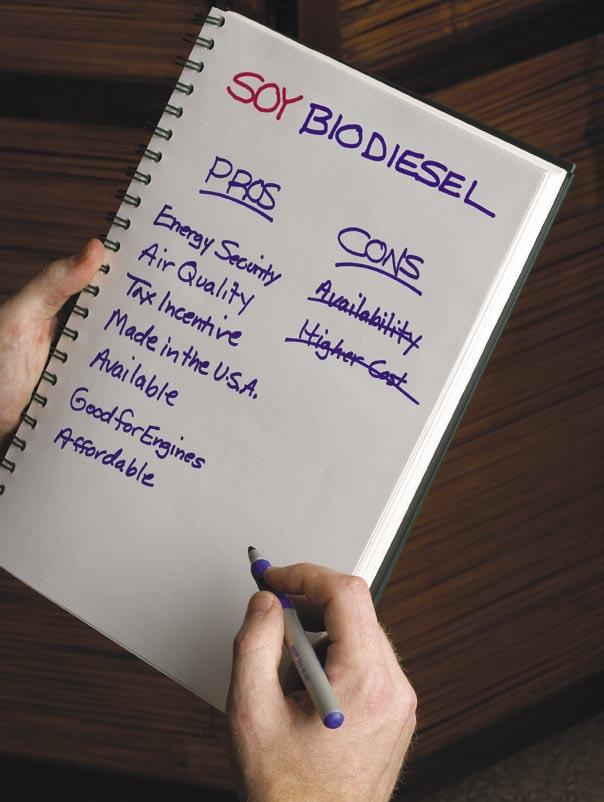 SOY BIODIESEL
PROS
Energy Security
Air Quality
Tax Incentive
Made in the U.S.A.
Available
Good for Engines
Affordable
CONS
Availability
Higher Cost